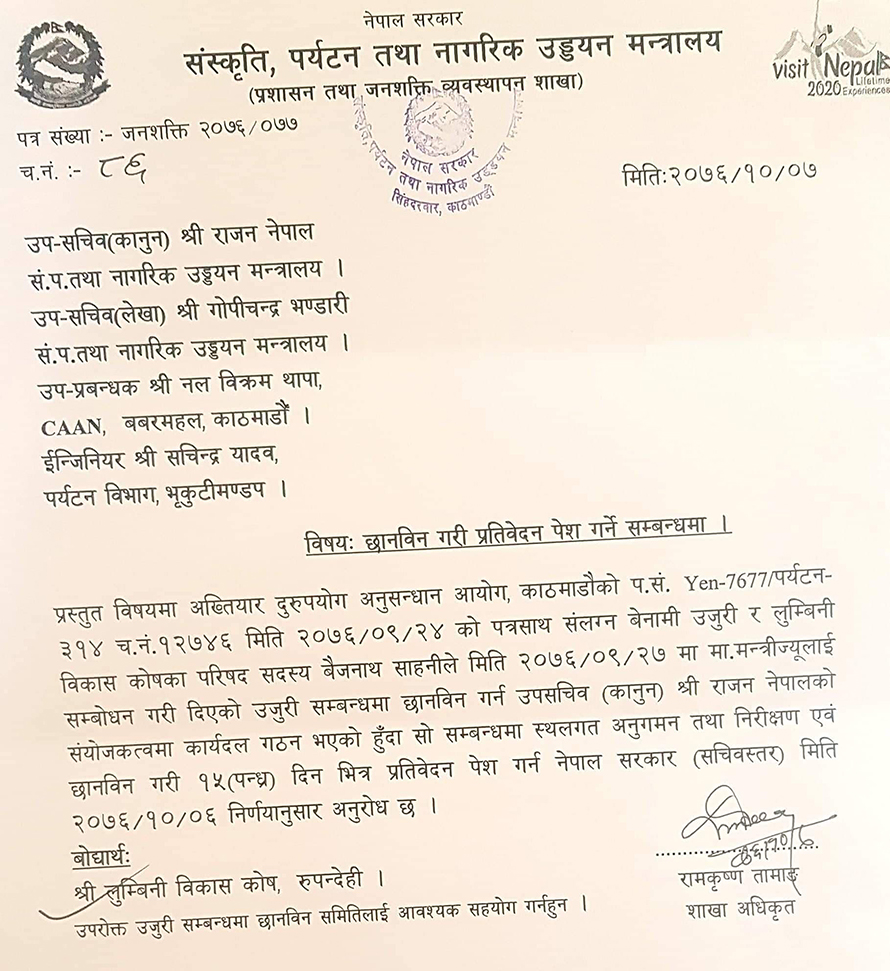 नेपाल सरकार
संस्कृति, पर्यटन तथा नागरिक उड्डयन मन्त्रालय
(प्रशासन तथा जनशक्ति व्यवस्थापन शाखा)
visit Nepal
Lifetime
2020 Experiences
पत्र संख्या :- जनशक्ति २०७६/०७७
च.नं. :- ८६
संस्कृति, पर्यटन तथा नागरिक उड्डयन मन्त्रालय
नेपाल सरकार
सिंहदरवार, काठमाण्डौ
मिति:२०७६/१०/०७
उप-सचिव(कानुन) श्री राजन नेपाल
सं.प.तथा नागरिक उड्डयन मन्त्रालय ।
उप-सचिव(लेखा) श्री गोपीचन्द्र भण्डारी
सं.प.तथा नागरिक उड्डयन मन्त्रालय ।
उप-प्रबन्धक श्री नल विक्रम थापा,
CAAN, बबरमहल, काठमाडौँ ।
ईन्जिनियर श्री सचिन्द्र यादव,
पर्यटन विभाग, भृकुटीमण्डप ।
विषय: छानविन गरी प्रतिवेदन पेश गर्ने सम्बन्धमा ।
प्रस्तुत विषयमा अख्तियार दुरुपयोग अनुसन्धान आयोग, काठमाडौको प.सं. Yen-7677/पर्यटन-
३१४ च.नं.१२७४६ मिति २०७६/०९/२४ को पत्रसाथ संलग्न बेनामी उजुरी र लुम्बिनी
विकास कोषका परिषद सदस्य बैजनाथ साहनीले मिति २०७६/०९/२७ मा मा.मन्त्रीज्यूलाई
सम्बोधन गरी दिएको उजुरी सम्बन्धमा छानविन गर्न उपसचिव (कानुन) श्री राजन नेपालको
संयोजकत्वमा कार्यदल गठन भएको हुँदा सो सम्बन्धमा स्थलगत अनुगमन तथा निरीक्षण एवं
छानविन गरी १५(पन्ध्र) दिन भित्र प्रतिवेदन पेश गर्न नेपाल सरकार (सचिवस्तर) मिति
२०७६/१०/०६ निर्णयानुसार अनुरोध छ ।
बोधार्थ:
श्री लुम्बिनी विकास कोष, रुपन्देही ।
उपरोक्त उजुरी सम्बन्धमा छानविन समितिलाई आवश्यक सहयोग गर्नहुन ।
रामकृष्ण तामाङ
शाखा अधिकृत